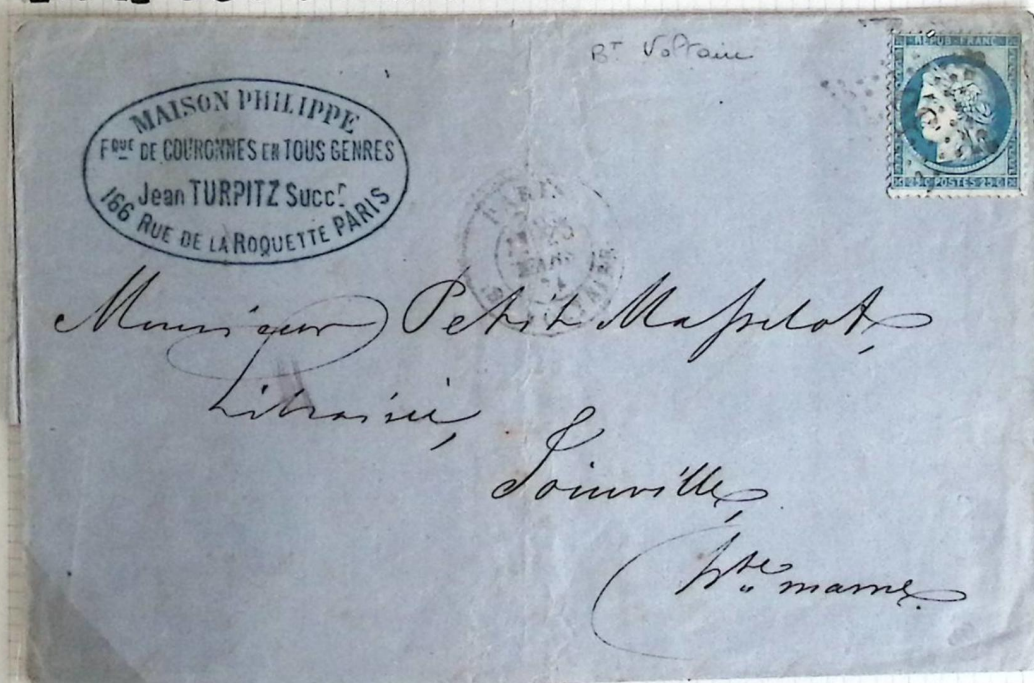 Bd Voltaire
REPUB. FRANC.
25 C POSTES 25 C
MAISON PHILIPPE
Fque DE COURONNES EN TOUS GENRES
Jean TURPITZ Succr
166 RUE DE LA ROQUETTE PARIS
PARIS
MARS
Monsieur Petit Masselot,
Librairie,
Joinville,
Hte marne.